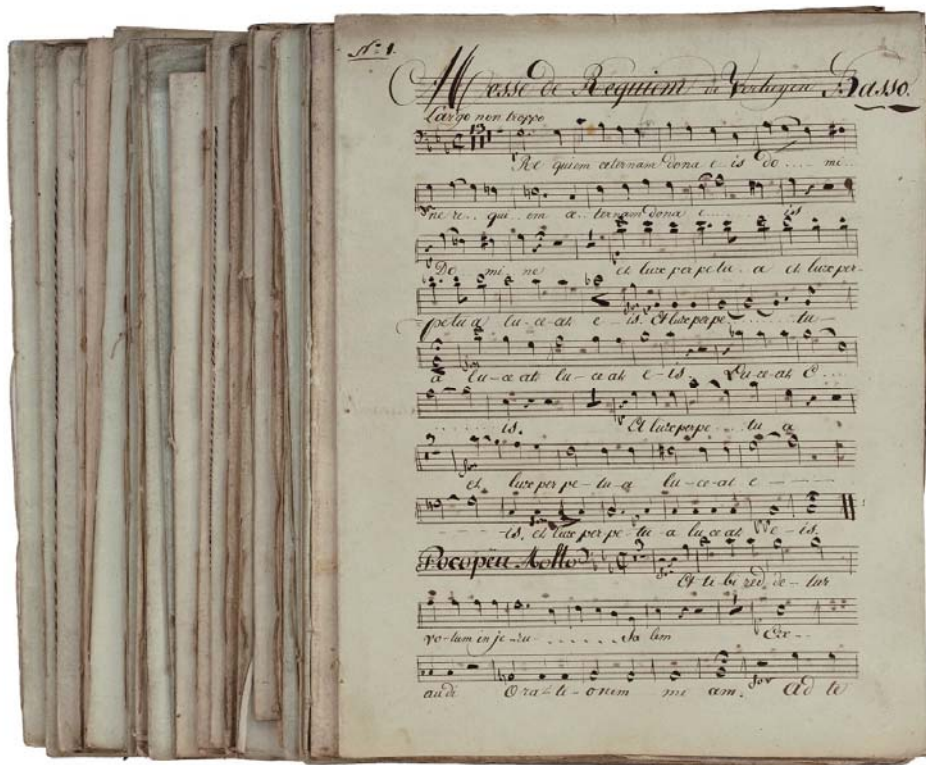 Nº 1.
Messe de Requiem Basso.
Largo non troppo
13
Re quiem æternam dona e.. is do.... mi..
ne re.. qui.. em æ.. ternam dona e....... is
Do.. mi.. ne et luxe perpetu.. a et luxe per-
petu a lu-ce-at e-is. Et luxe perpe....... tu-
a lu-ce at lu-ce at e-is. Lu-ce-at e...
...... is. Et luxe perpe.. tu a
et luxe per pe-tu-a lu-ce-at e-----
----is. et luxe per pe-tu-a lu ce at e-is.
Poco più Molto Et ti bi red, de-tur
vo-tum in je-ru-...... sa lem Ex--
au di Ora-ti-onem me am. ad te